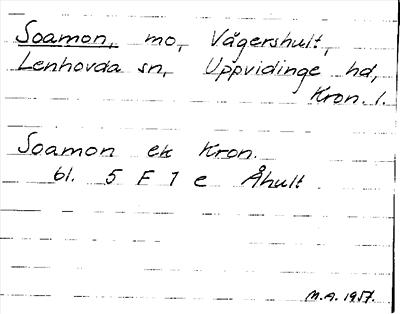 Soamon, mo, Vågershult,
Lenhovda sn, Uppvidinge hd,
Kron. l.
Soamon ek Kron.
bl. 5 F 1 e Åhult
M.A. 1957.